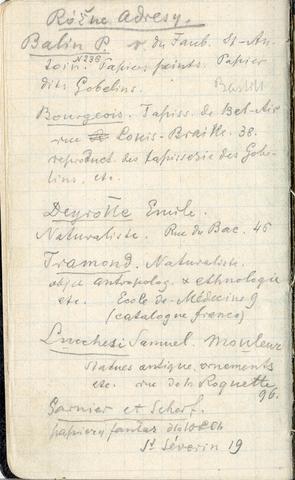 Różne adresy.
Balin P. r. du Faub. St-An-
toin. N 236. Papiers peints. Papier
dits Gobelins. Bastill
Bourgeois. Tapiss. de Bel-Air
rue Louis-Braille. 38.
reproduct. des tapisserie des Gobe-
lins, etc.
Deyrolle Emile.
Naturaliste. Rue du Bac. 46
Tramond. Naturaliste.
objet antropolog. & ethnologie
etc. Ecole de-Médecine 9
(catalogue franco)
Lucchesi Samuel. Mouleur
statues antique, ornements
etc. rue de la Roquette
96.
Garnier et Scherf.
papiery fantas
St Séverin 19